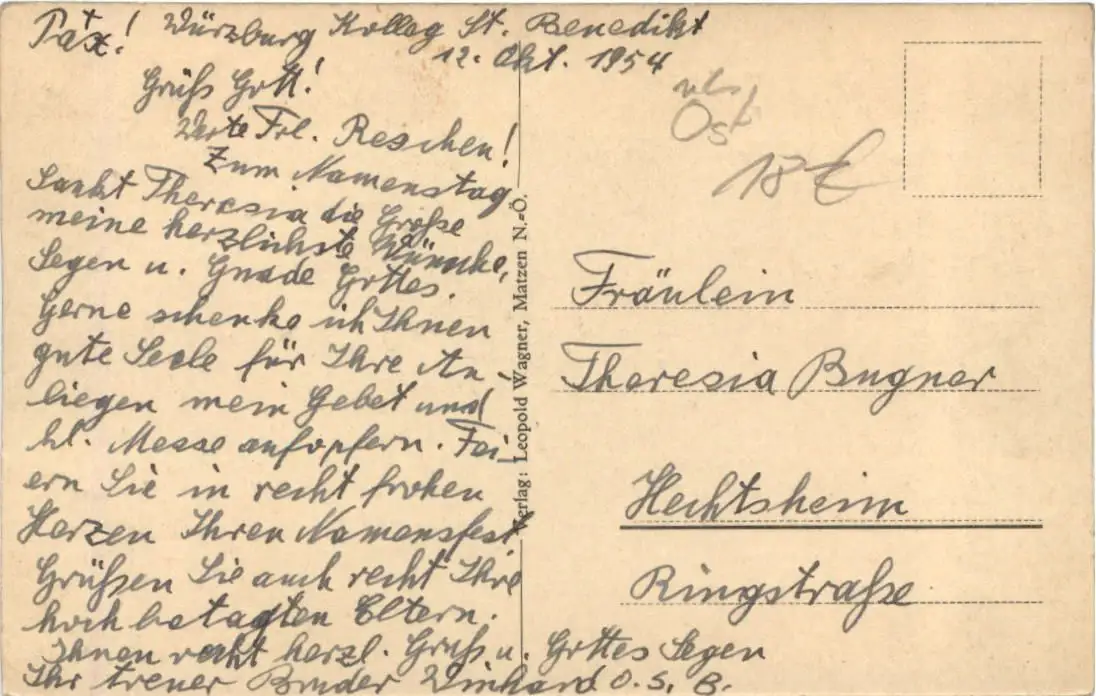 Pax! Würzburg Kolleg St. Benedikt
12. Okt. 1954
Grüß Gott!
Werte Frl. Reschen!
Zum Namenstag
Sankt Theresia die Große
meine herzlichste Wünsche,
Segen u. Gnade Gottes.
Gerne schenke ich Ihnen
gute Seele für Ihre An-
liegen mein Gebet und
hl. Messe aufopfern. Fei-
ern Sie in recht frohen
Herzen Ihren Namensfest
Grüßen Sie auch recht Ihre
hochbetagten Eltern.
Ihnen recht herzl. Gruß u. Gottes Segen
Ihr treuer Bruder O. S. B.
Verlag: Leopold Wagner, Matzen N.-Ö.
Ost
18 €
Fräulein
Theresia Bugner
Hechtsheim
Ringstraße